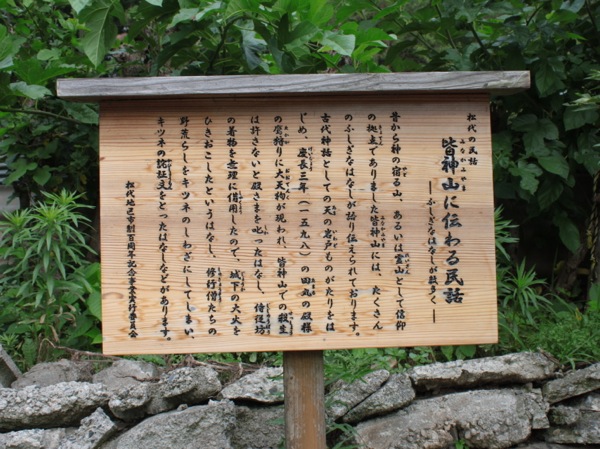 松代の民話
皆神山に伝わる民話
みなかみやま
―ふしぎなはなしが数多く―
昔から神の宿る山、あるいは霊山として信仰
の拠点でありました皆神山には、たくさん
のふしぎなはなしが語り伝えられております。
古代神話としての天の岩戸ものがたりをは
じめ、慶長三年（一五九八）の田丸の殿様
の鷹狩りに大天狗が現われ、皆神山での殺生
は許さないと殿さまを叱ったはなし、侍従坊
の着物を無理に借用したので、城下の大火を
ひきおこしたというはなし、修行僧たちの
野荒らしをキツネのしわざにしてしまい、
キツネの詫証文をとったはなしなどがあります。
松代地区市制百周年記念事業実行委員会